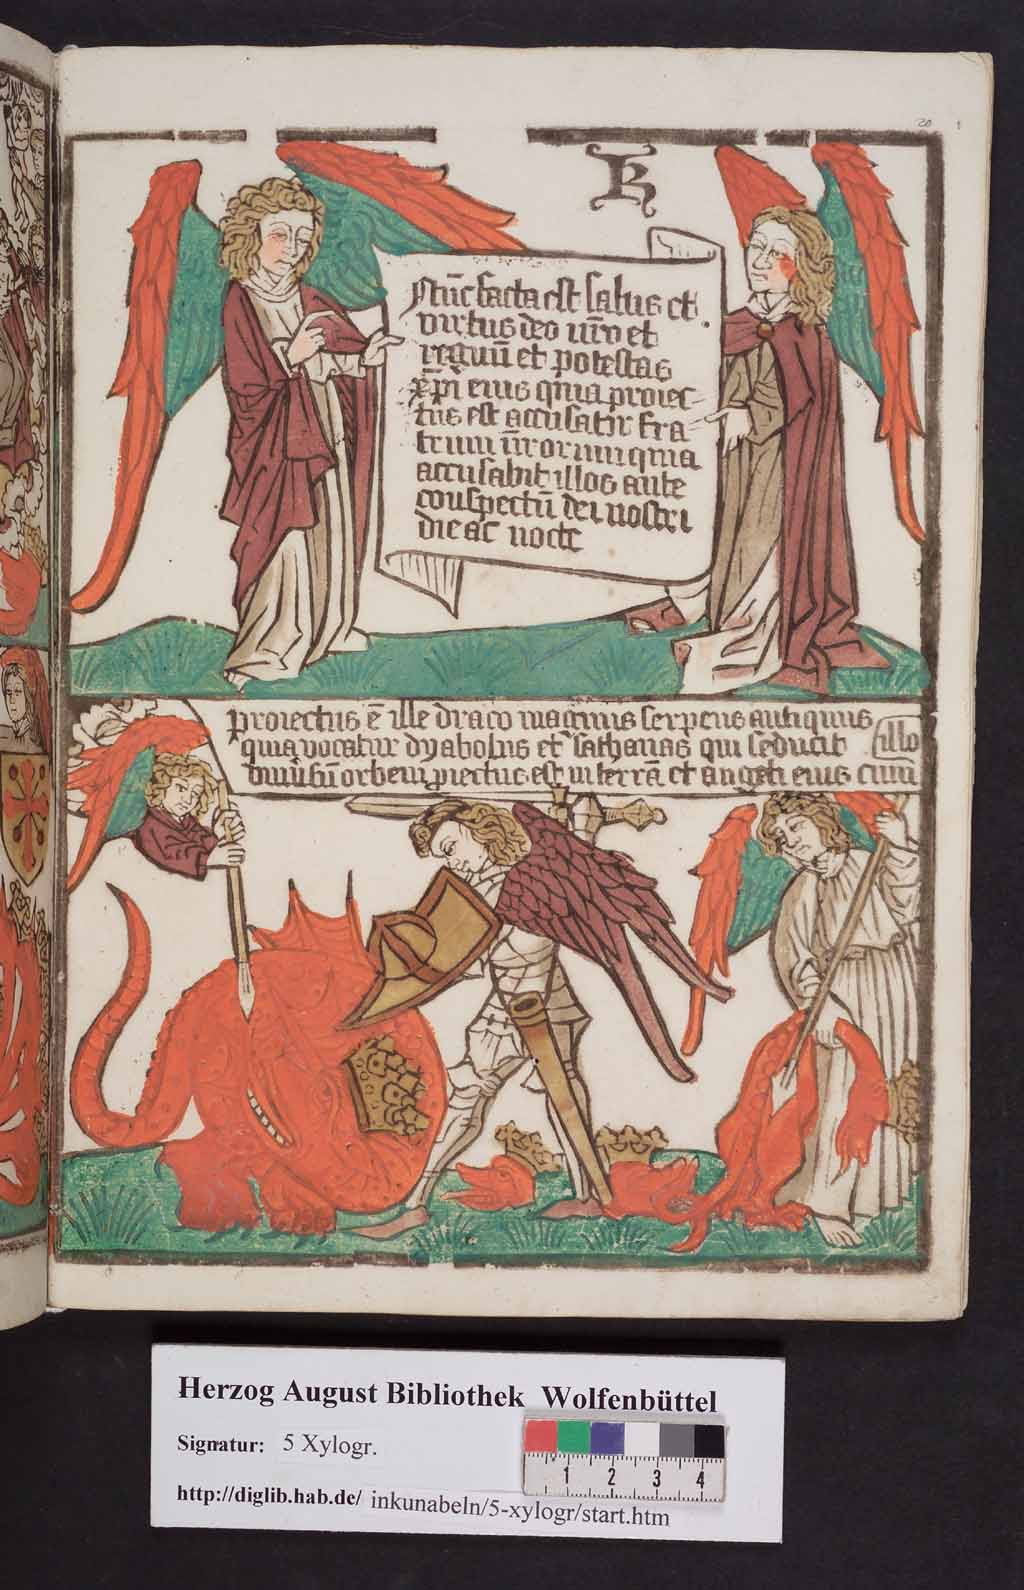 20
K
Nūc facta est salus et
virtus deo nr̄o et
regnū et potestas
xp̄i eius quia proiec
tus est accusator fra
trum nr̄orum quia
accusabit illos ante
conspectū dei nostri
die ac nocte
proiectus ē ille draco magnus serpens antiquus
qui vocatur dyabolus et sathanas qui seducit
vniūsū orbem piectus est in terrā et angeli eius cum
illo
Herzog August Bibliothek Wolfenbüttel
Signatur: 5 Xylogr.
1 2 3 4
http://diglib.hab.de/ inkunabeln/5-xylogr/start.htm